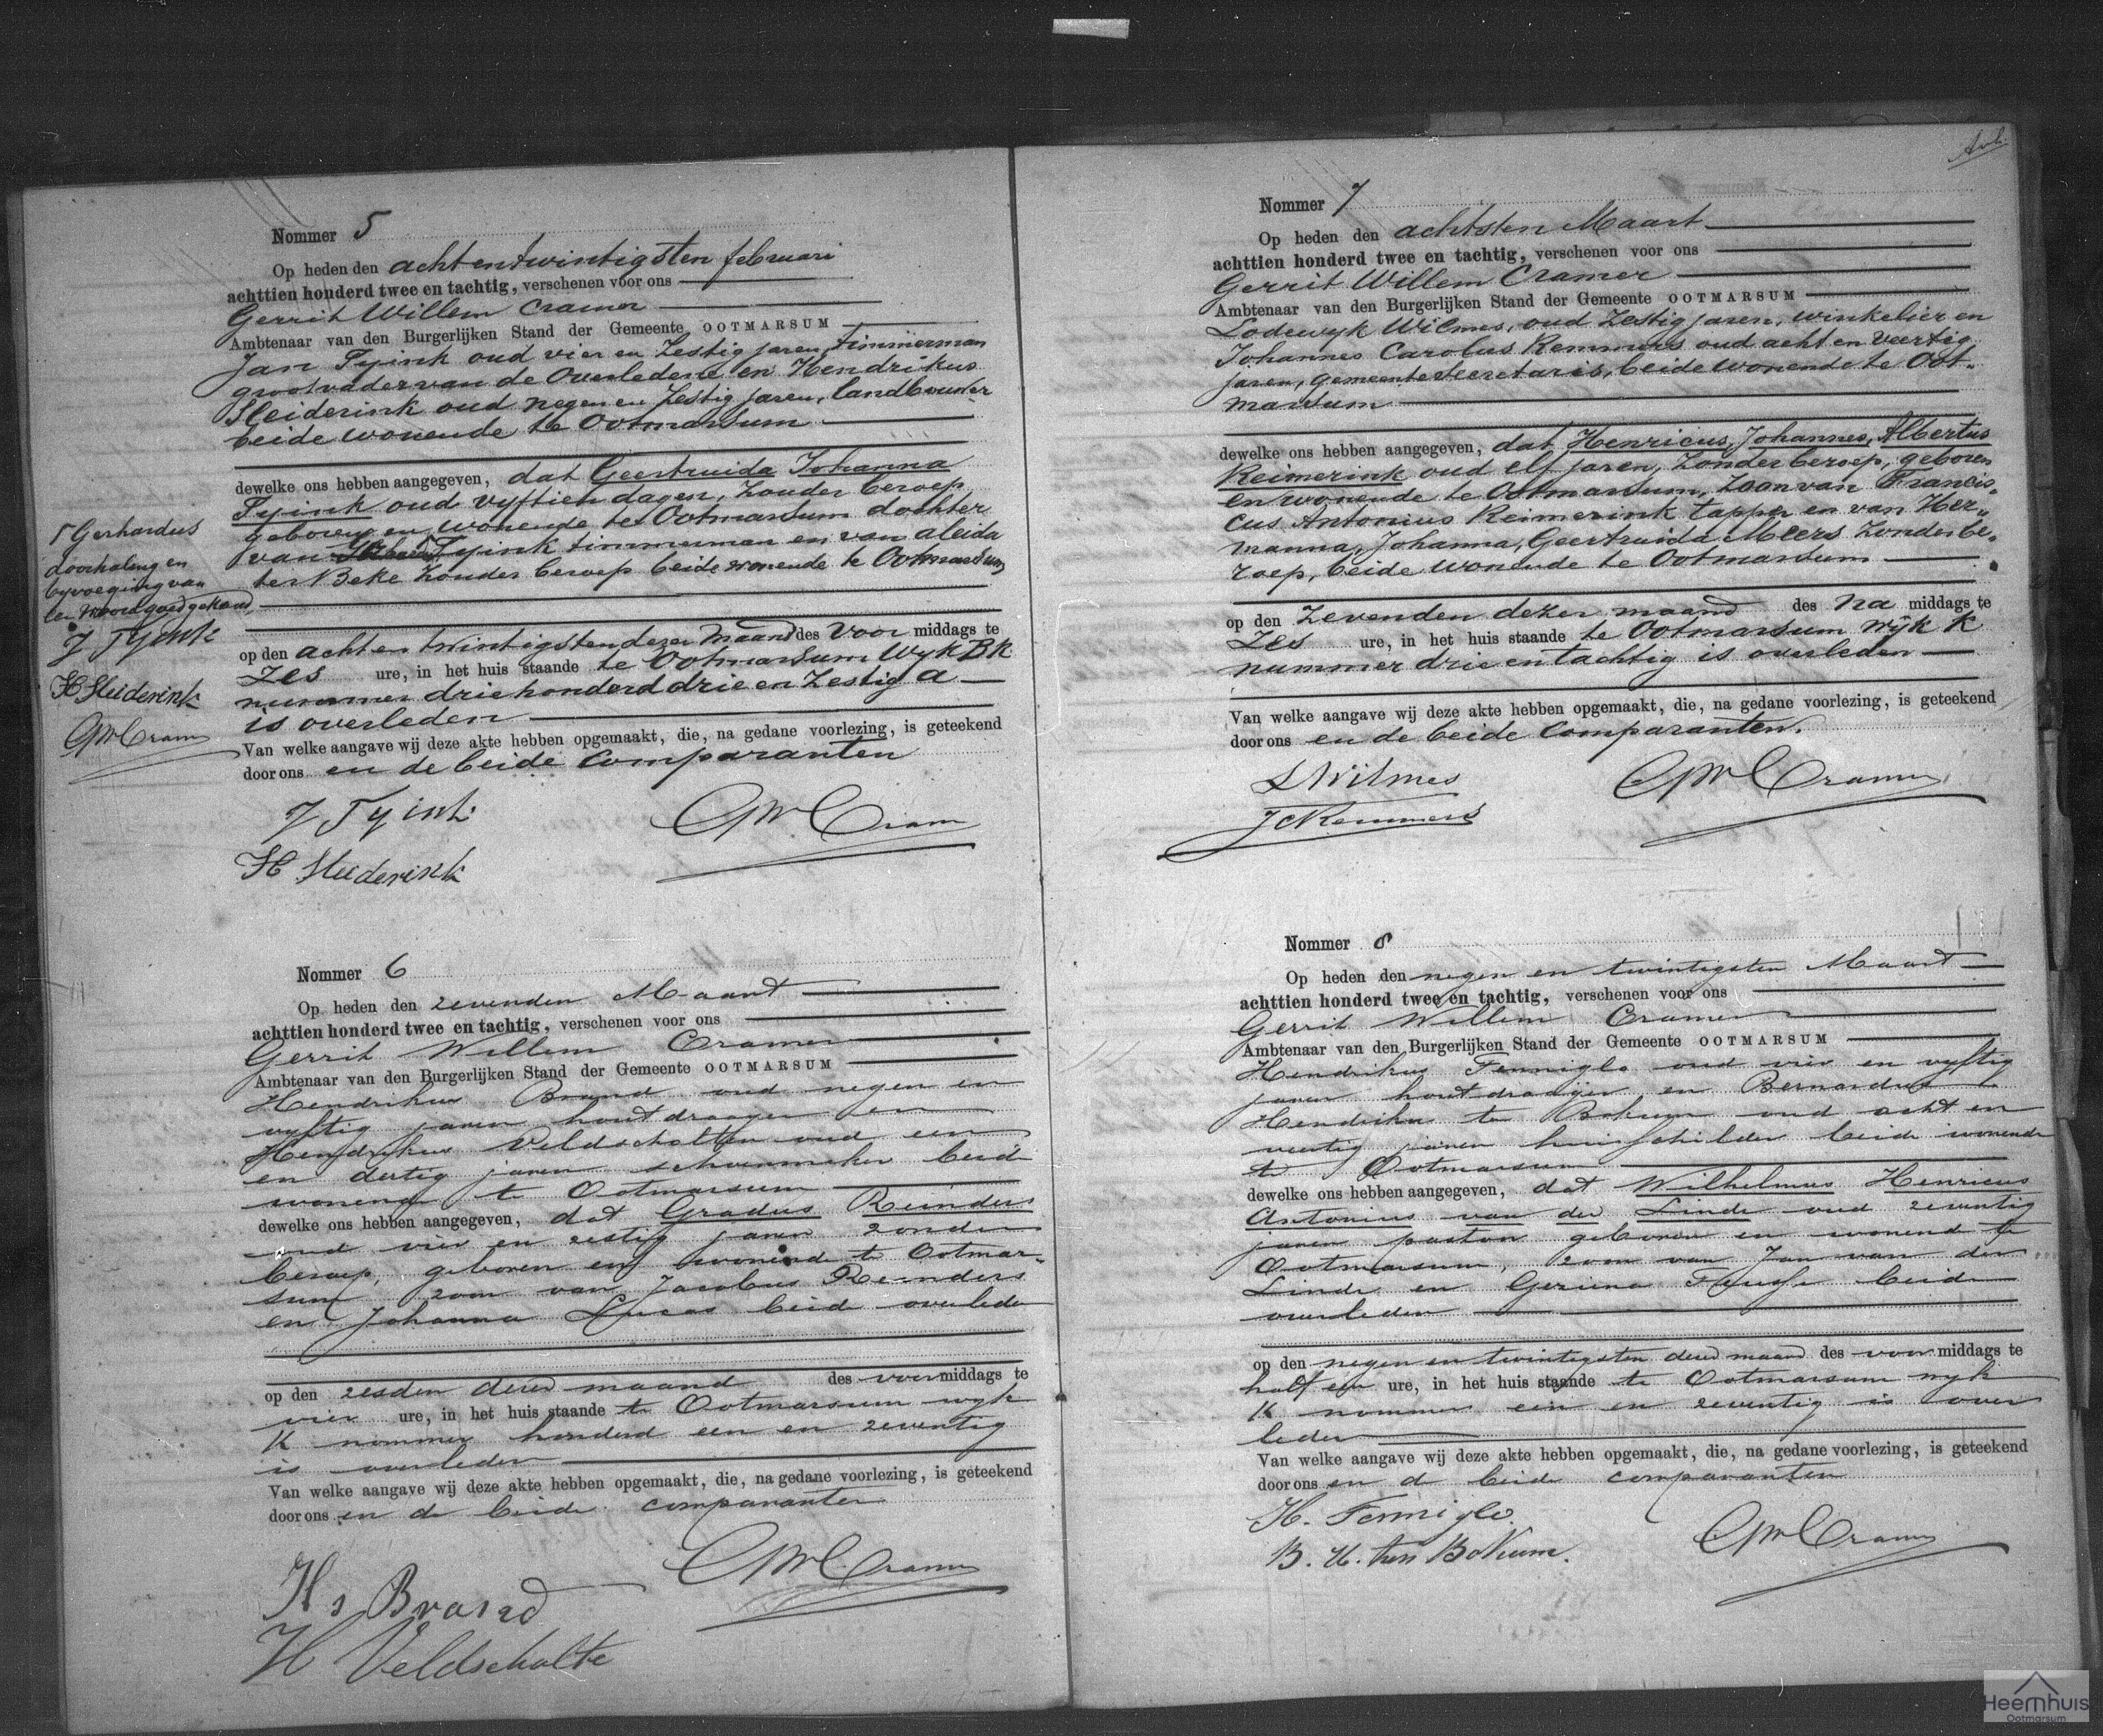 Nommer 5
Op heden den achtentwintigsten februari
achttien honderd twee en tachtig, verschenen voor ons
Gerrit Willem Cramer
Ambtenaar van den Burgerlijken Stand der Gemeente OOTMARSUM
Jan Tyink oud vier en Zestig jaren, timmerman
grootvader van de Overledene en Hendrikus
Sleiderink oud negen en Zestig jaren, landbouwer
beide wonende te Ootmarsum
dewelke ons hebben aangegeven, dat Geertruida Johanna
Tyink oud vyftien dagen, Zonder beroep
geboren en wonende te Ootmarsum dochter
van Tyink timmerman en van aleida
ter Beke Zonder beroep beide wonende te Ootmarsum
op den acht en twintigsten dezer Maand des Voor middags te
Zes ure, in het huis staande te Ootmarsum Wyk BK
nummer driehonderd drie en Zestig a
is overleden
Van welke aangave wij deze akte hebben opgemaakt, die, na gedane voorlezing, is geteekend
door ons en de beide Comparanten
J Tyink
GWCramer
H Sleiderink
Γ Gerhardus
doorhaling en
byvoeging van
een woord goedgekeurd
J Tyink
H Sleiderink
GWCramer
Nommer 6
Op heden den zevenden Maart
achttien honderd twee en tachtig, verschenen voor ons
Gerrit Willem Cramer
Ambtenaar van den Burgerlijken Stand der Gemeente OOTMARSUM
Hendrikus Brand oud negen en
vyftig jaren houtdraayer en
Hendrikus Veldscholten oud een
en dertig jaren schoenmaker beide
wonende te Ootmarsum
dewelke ons hebben aangegeven, dat Gradus Reinders
oud vier en zestig jaren zonder
beroep, geboren en wonende te Ootmar-
sum zoon van Jacobus Reinders
en Johanna Lucas beide overleden
op den zesden dezer maand des voormiddags te
vier ure, in het huis staande te Ootmarsum wyk
K nommer honderd een en zeventig
is overleden
Van welke aangave wij deze akte hebben opgemaakt, die, na gedane voorlezing, is geteekend
door ons en de beide comparanten
GWCramer
Hs Brand
H Veldscholte
Avl.
Nommer 7
Op heden den achtsten Maart
achttien honderd twee en tachtig, verschenen voor ons
Gerrit Willem Cramer
Ambtenaar van den Burgerlijken Stand der Gemeente OOTMARSUM
Lodewyk Wilmes, oud Zestig jaren, winkelier en
Johannes Carolus Remmers oud acht en veertig
jaren, gemeentesecretaris, beide wonende te Oot-
marsum
dewelke ons hebben aangegeven, dat Henricus, Johannes, Albertus
Reimerink oud elf jaren, Zonder beroep, geboren
en wonende te Ootmarsum, Zoon van Francis-
cus Antonius Reimerink tapper en van Her-
manna, Johanna, Geertruida Meers Zonder be-
roep, beide wonende te Ootmarsum
op den Zevenden dezer maand des Na middags te
Zes ure, in het huis staande te Ootmarsum wijk K
nummer drie en tachtig is overleden
Van welke aangave wij deze akte hebben opgemaakt, die, na gedane voorlezing, is geteekend
door ons en de beide Comparanten.
LWilmes
GWCramer
JCRemmers
Nommer 8
Op heden den negen en twintigsten Maart
achttien honderd twee en tachtig, verschenen voor ons
Gerrit Willem Cramer
Ambtenaar van den Burgerlijken Stand der Gemeente OOTMARSUM
Hendrikus Fermiglo oud vier en vyftig
jaren houtdraaijer en Bernardus
Hendrikus ten Bokum oud acht en
veertig jaren huisschilder beide wonende
te Ootmarsum
dewelke ons hebben aangegeven, dat Wilhelmus Henricus
Antonius van der Linde oud zeventig
jaren pastor geboren en wonende te
Ootmarsum, zoon van Jan van der
Linde en Gesiena beide
overleden
op den negen en twintigsten dezer maand des voormiddags te
half een ure, in het huis staande te Ootmarsum wyk
K nommer een en zeventig is over
leden
Van welke aangave wij deze akte hebben opgemaakt, die, na gedane voorlezing, is geteekend
door ons en de beide comparanten
H. Fermiglo.
B. H. ten Bokum.
GWCramer
Heemhuis
Ootmarsum